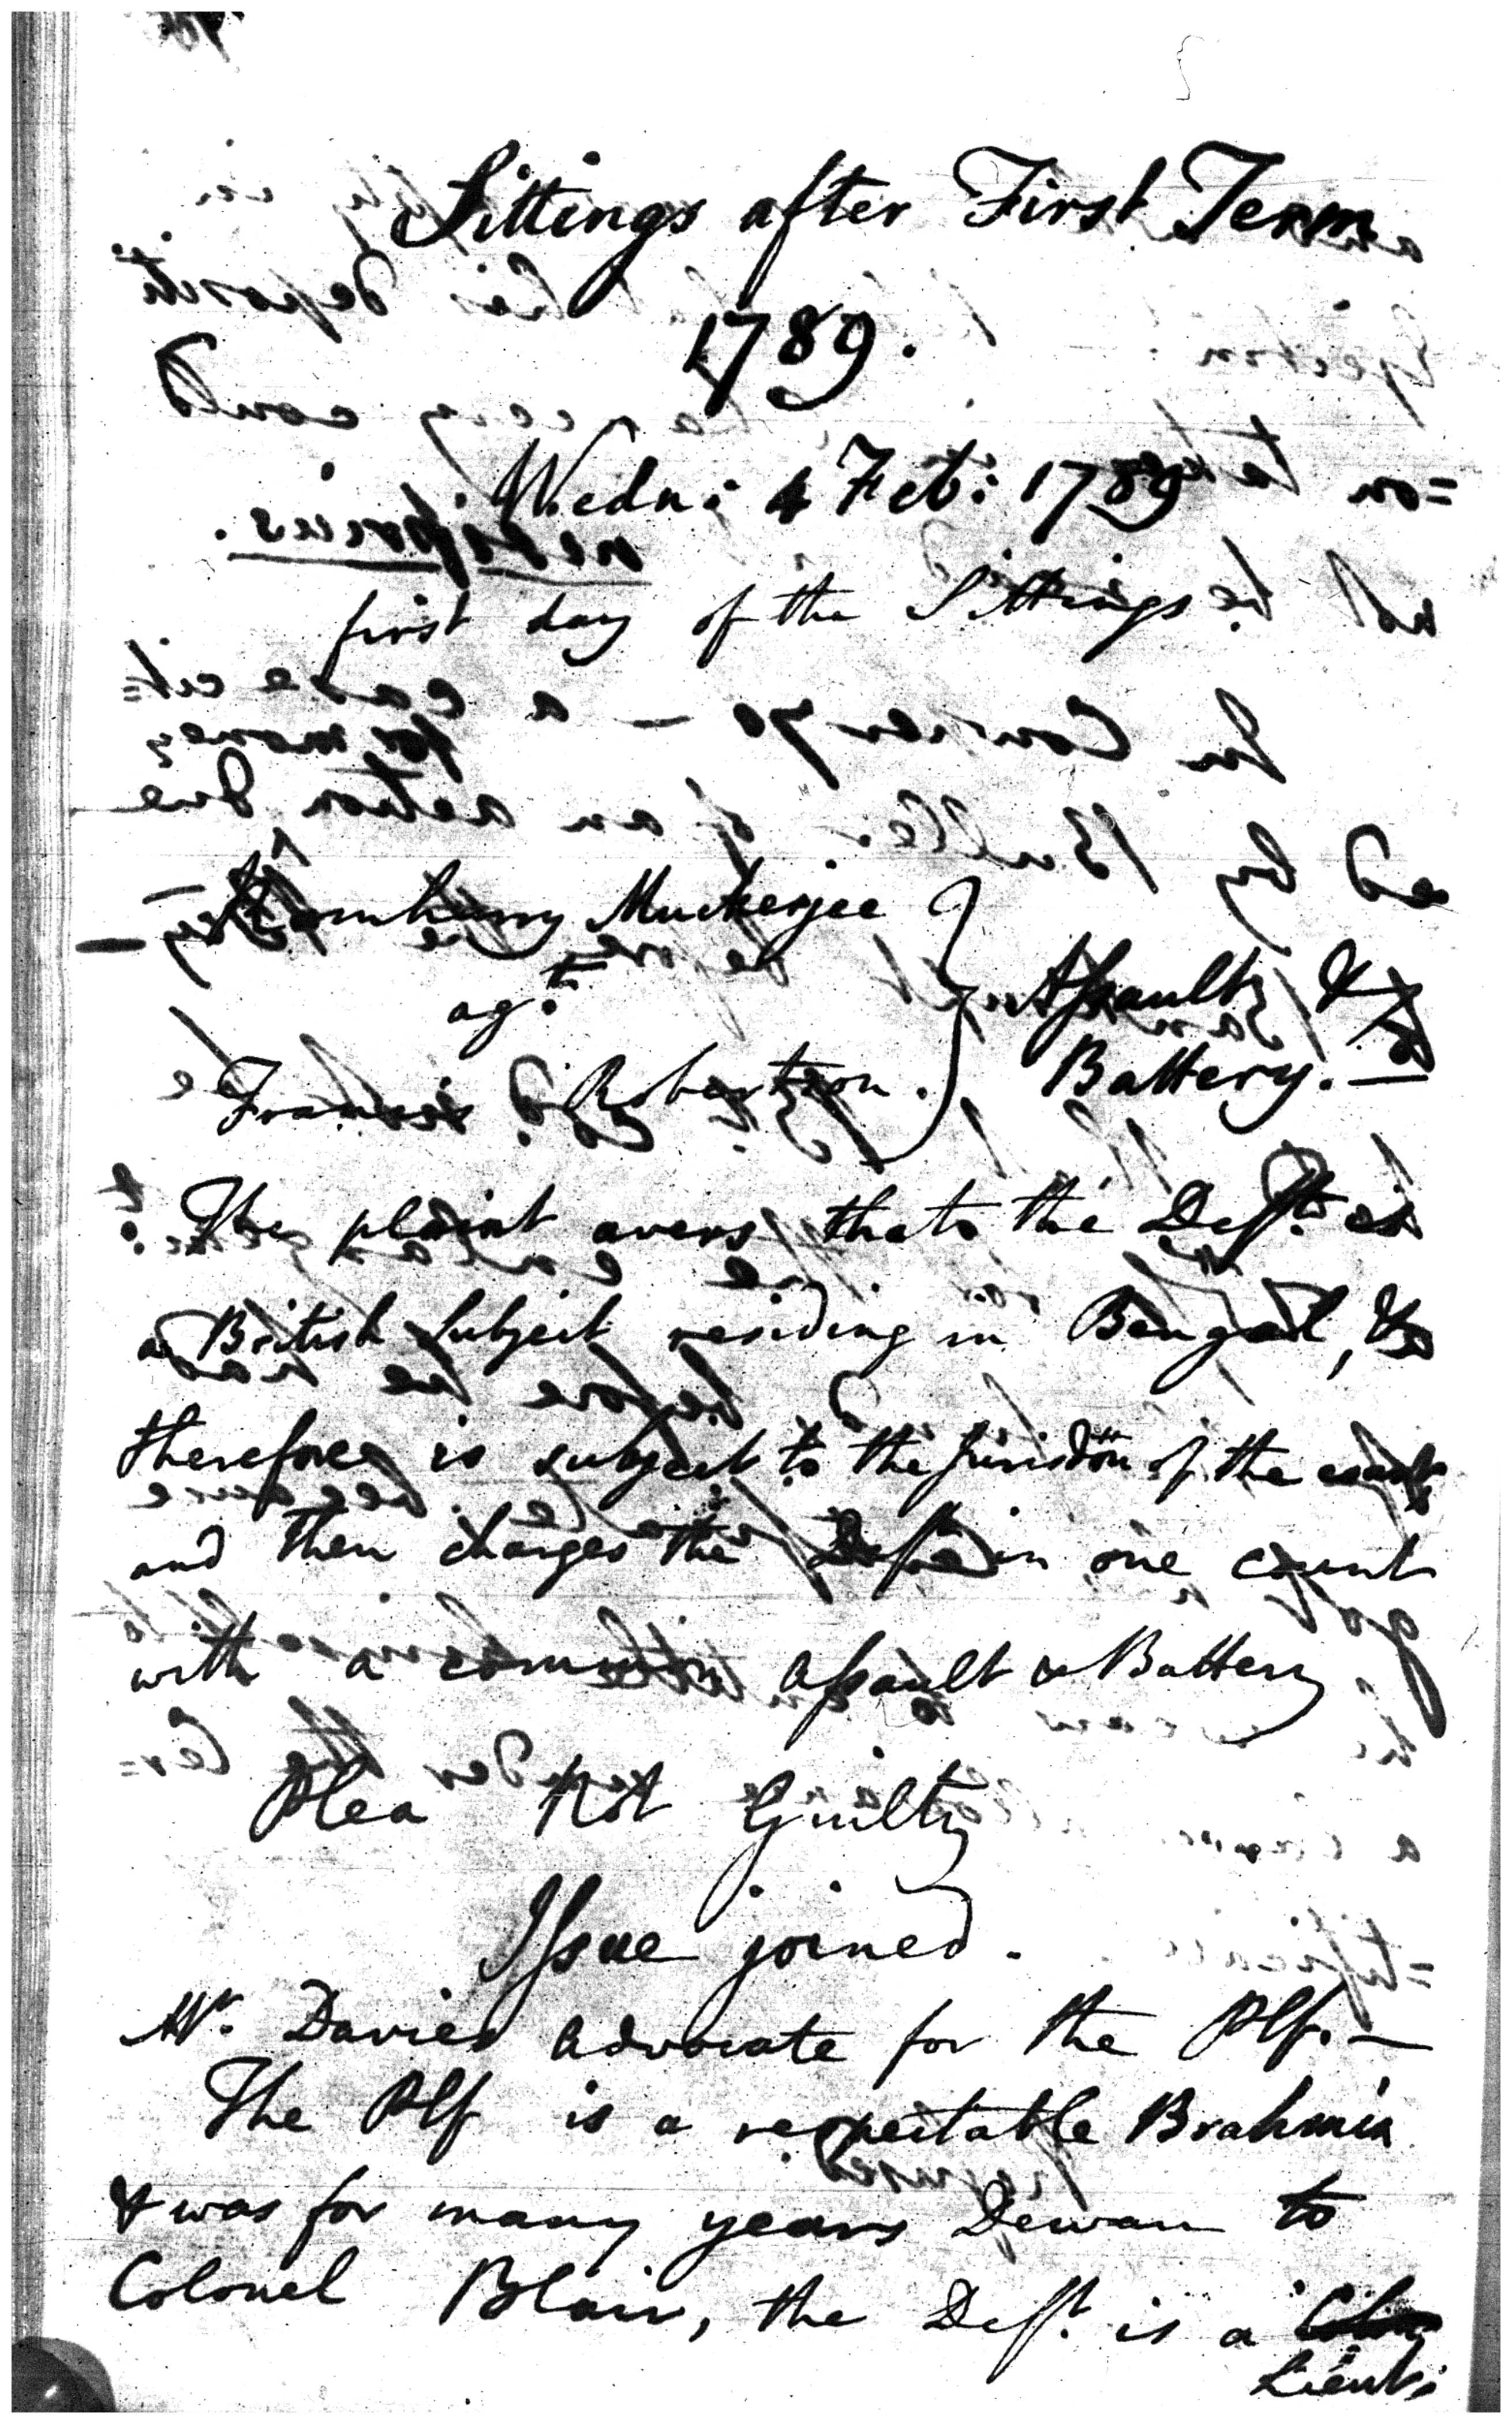 Sittings after First Term
1789.
Wedn: 4 Feb: 1789
first day of the Sittings
Ramhurry Muckerjee
agt.
Francis Robertson.
Assault &
Battery. —
The plaint avers that the Deft. is
a British subject residing in Bengal, &
therefore is subject to the jurisdon of the court
and then charges the Deft in one count
with a common assault & Battery
Plea Not Guilty
Issue joined.
Mr. Davies advocate for the Plf. —
The Plf is a respectable Brahmin
& was for many years Dewan to
Colonel Blair, the Deft. is a
Lieut: